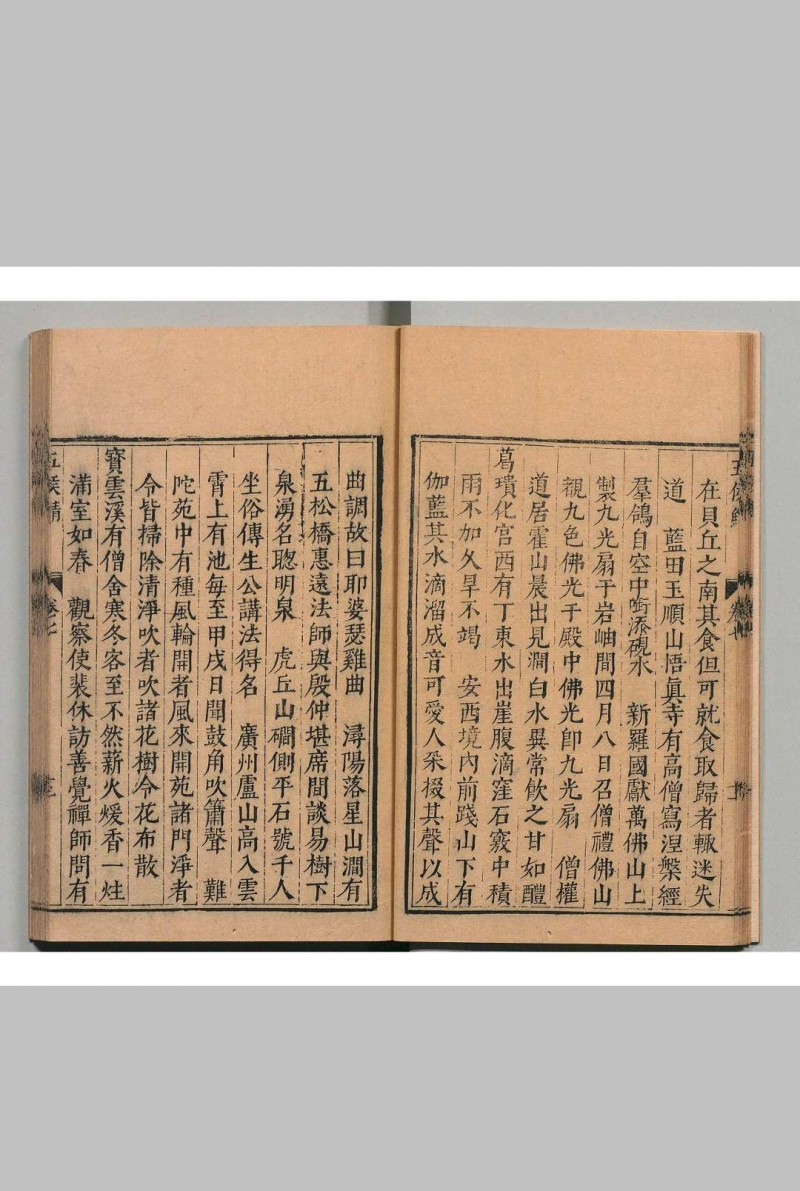 在貝丘之南其食但可就食取歸者輙迷失
道　藍田玉順山悟眞寺有高僧寫涅槃經
羣鴿自空中啣添硯水　新羅國獻萬佛山上
製九光扇于岩岫間四月八日召僧禮佛山
觀九色佛光于殿中佛光卽九光扇　僧權
道居霍山晨出見澗白水異常飲之甘如醴
葛璝化宫西有丁東水出崖腹滴窪石竅中積
雨不加久旱不竭　安西境内前踐山下有
伽藍其水滴溜成音可愛人采掇其聲以成
曲調故曰耶婆瑟雞曲　潯陽落星山澗有
五松橋惠遠法師與殷仲堪席間談易樹下
泉湧名聰明泉　虎丘山磵側平石號千人
坐俗傳生公講法得名　廣州盧山高入雲
霄上有池每至甲戌日聞鼓角吹簫聲　難
陀苑中有種風輪開者風來開苑諸門淨者
令皆掃除清淨吹者吹諸花樹令花布散
寳雲溪有僧舍寒冬客至不然薪火煖香一炷
滿室如春　觀察使裴休訪善覺禪師問有
五侯鯖
卷七